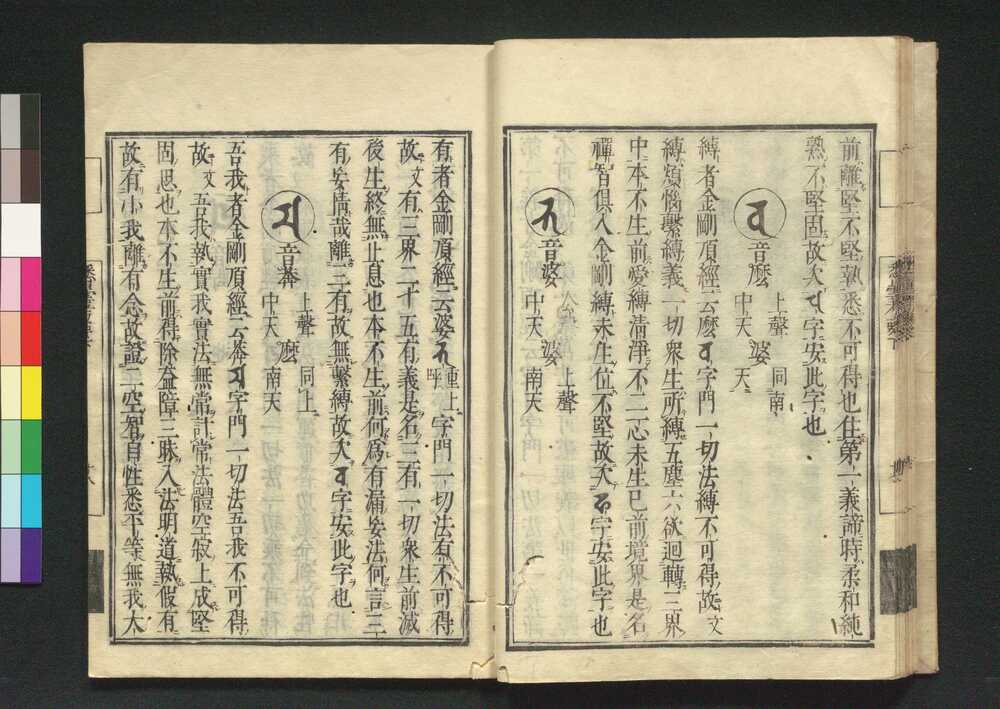 前離堅不堅執悉不可得也住第一義諦時柔和純
熟不堅固故次字安此字也
音麽 上聲 中天 婆 同南 天
縛者金剛頂經云麽字門一切法縛不可得故文
縛煩惱繫縛義一切衆生所縛五塵六欲迴轉三界
中本不生前愛縛清淨不二心未生已前境界是名
禪智俱入金剛縛未生位不堅故次字安此字也
音婆 中天 婆 上聲 南天
有者金剛頂經云婆重上呼字門一切法有不可得
故文有三界二十五有義是名三有一切衆生前滅
後生終無止息也本不生前何爲有漏妄法何言三
有妄情哉離三有故無繫縛故次字安此字也
音莽 上聲 中天 麽 同上 南天
吾我者金剛頂經云莽字門一切法吾我不可得
故文吾我執實我實法無常計常法體空寂上成堅
固思也本不生前得除蓋障三昧入法明道執假有
故有小我離有念故證二空智自性悉平等無我大